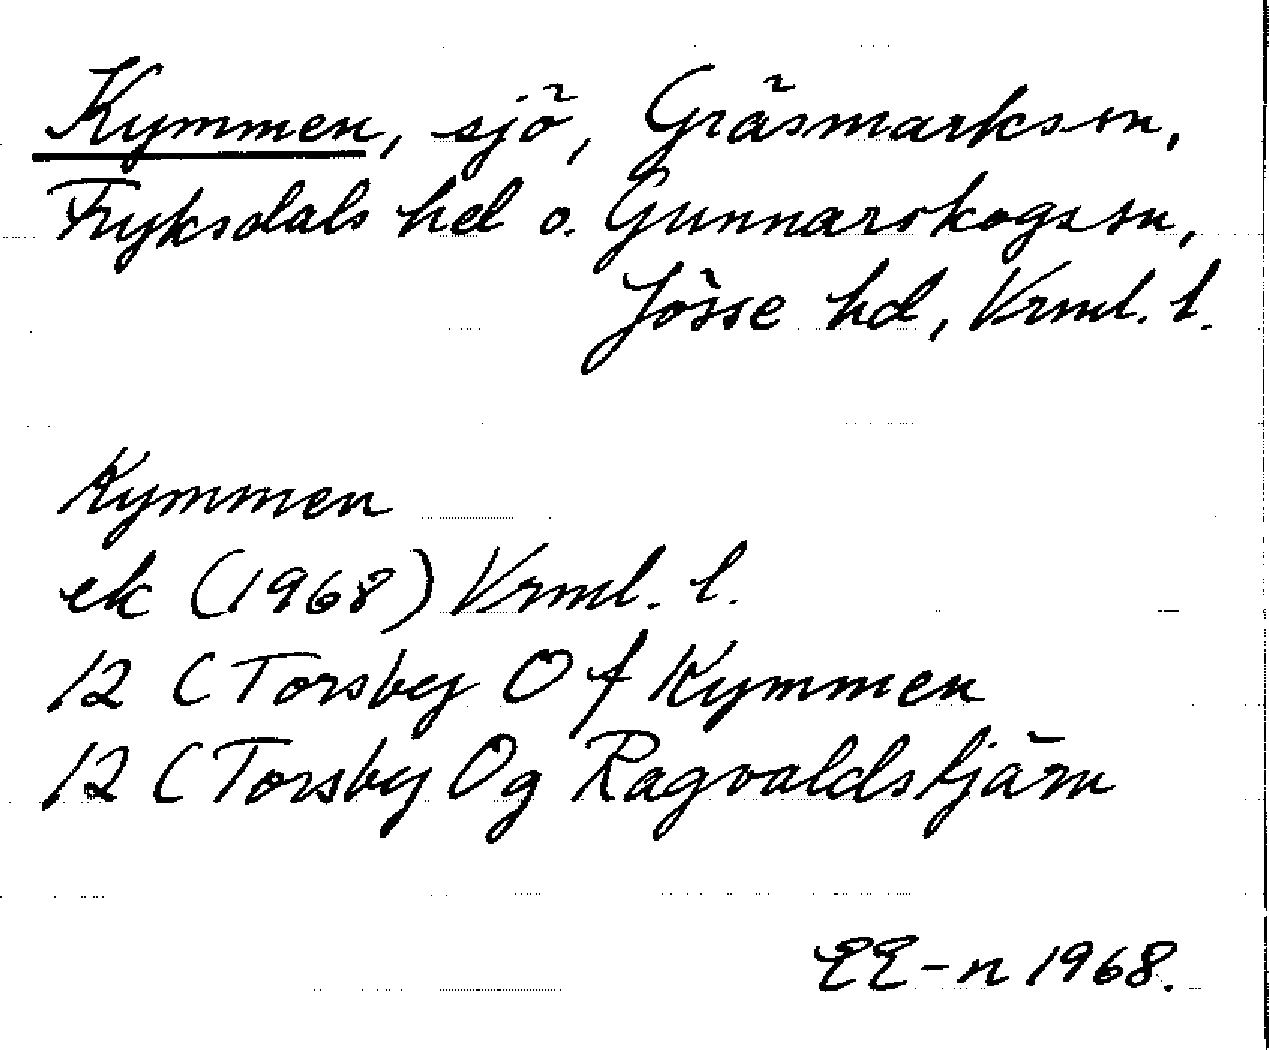 Kymmen, sjö, Gräsmarks sn,
Fryksdals hd o. Gunnarskogs sn,
Jösse hd, Vrml. l.
Kymmen
ek (1968) Vrml. l.
12 C Torsby O f Kymmen
12 C Torsby O g Ragvaldstjärn
EE-n 1968.